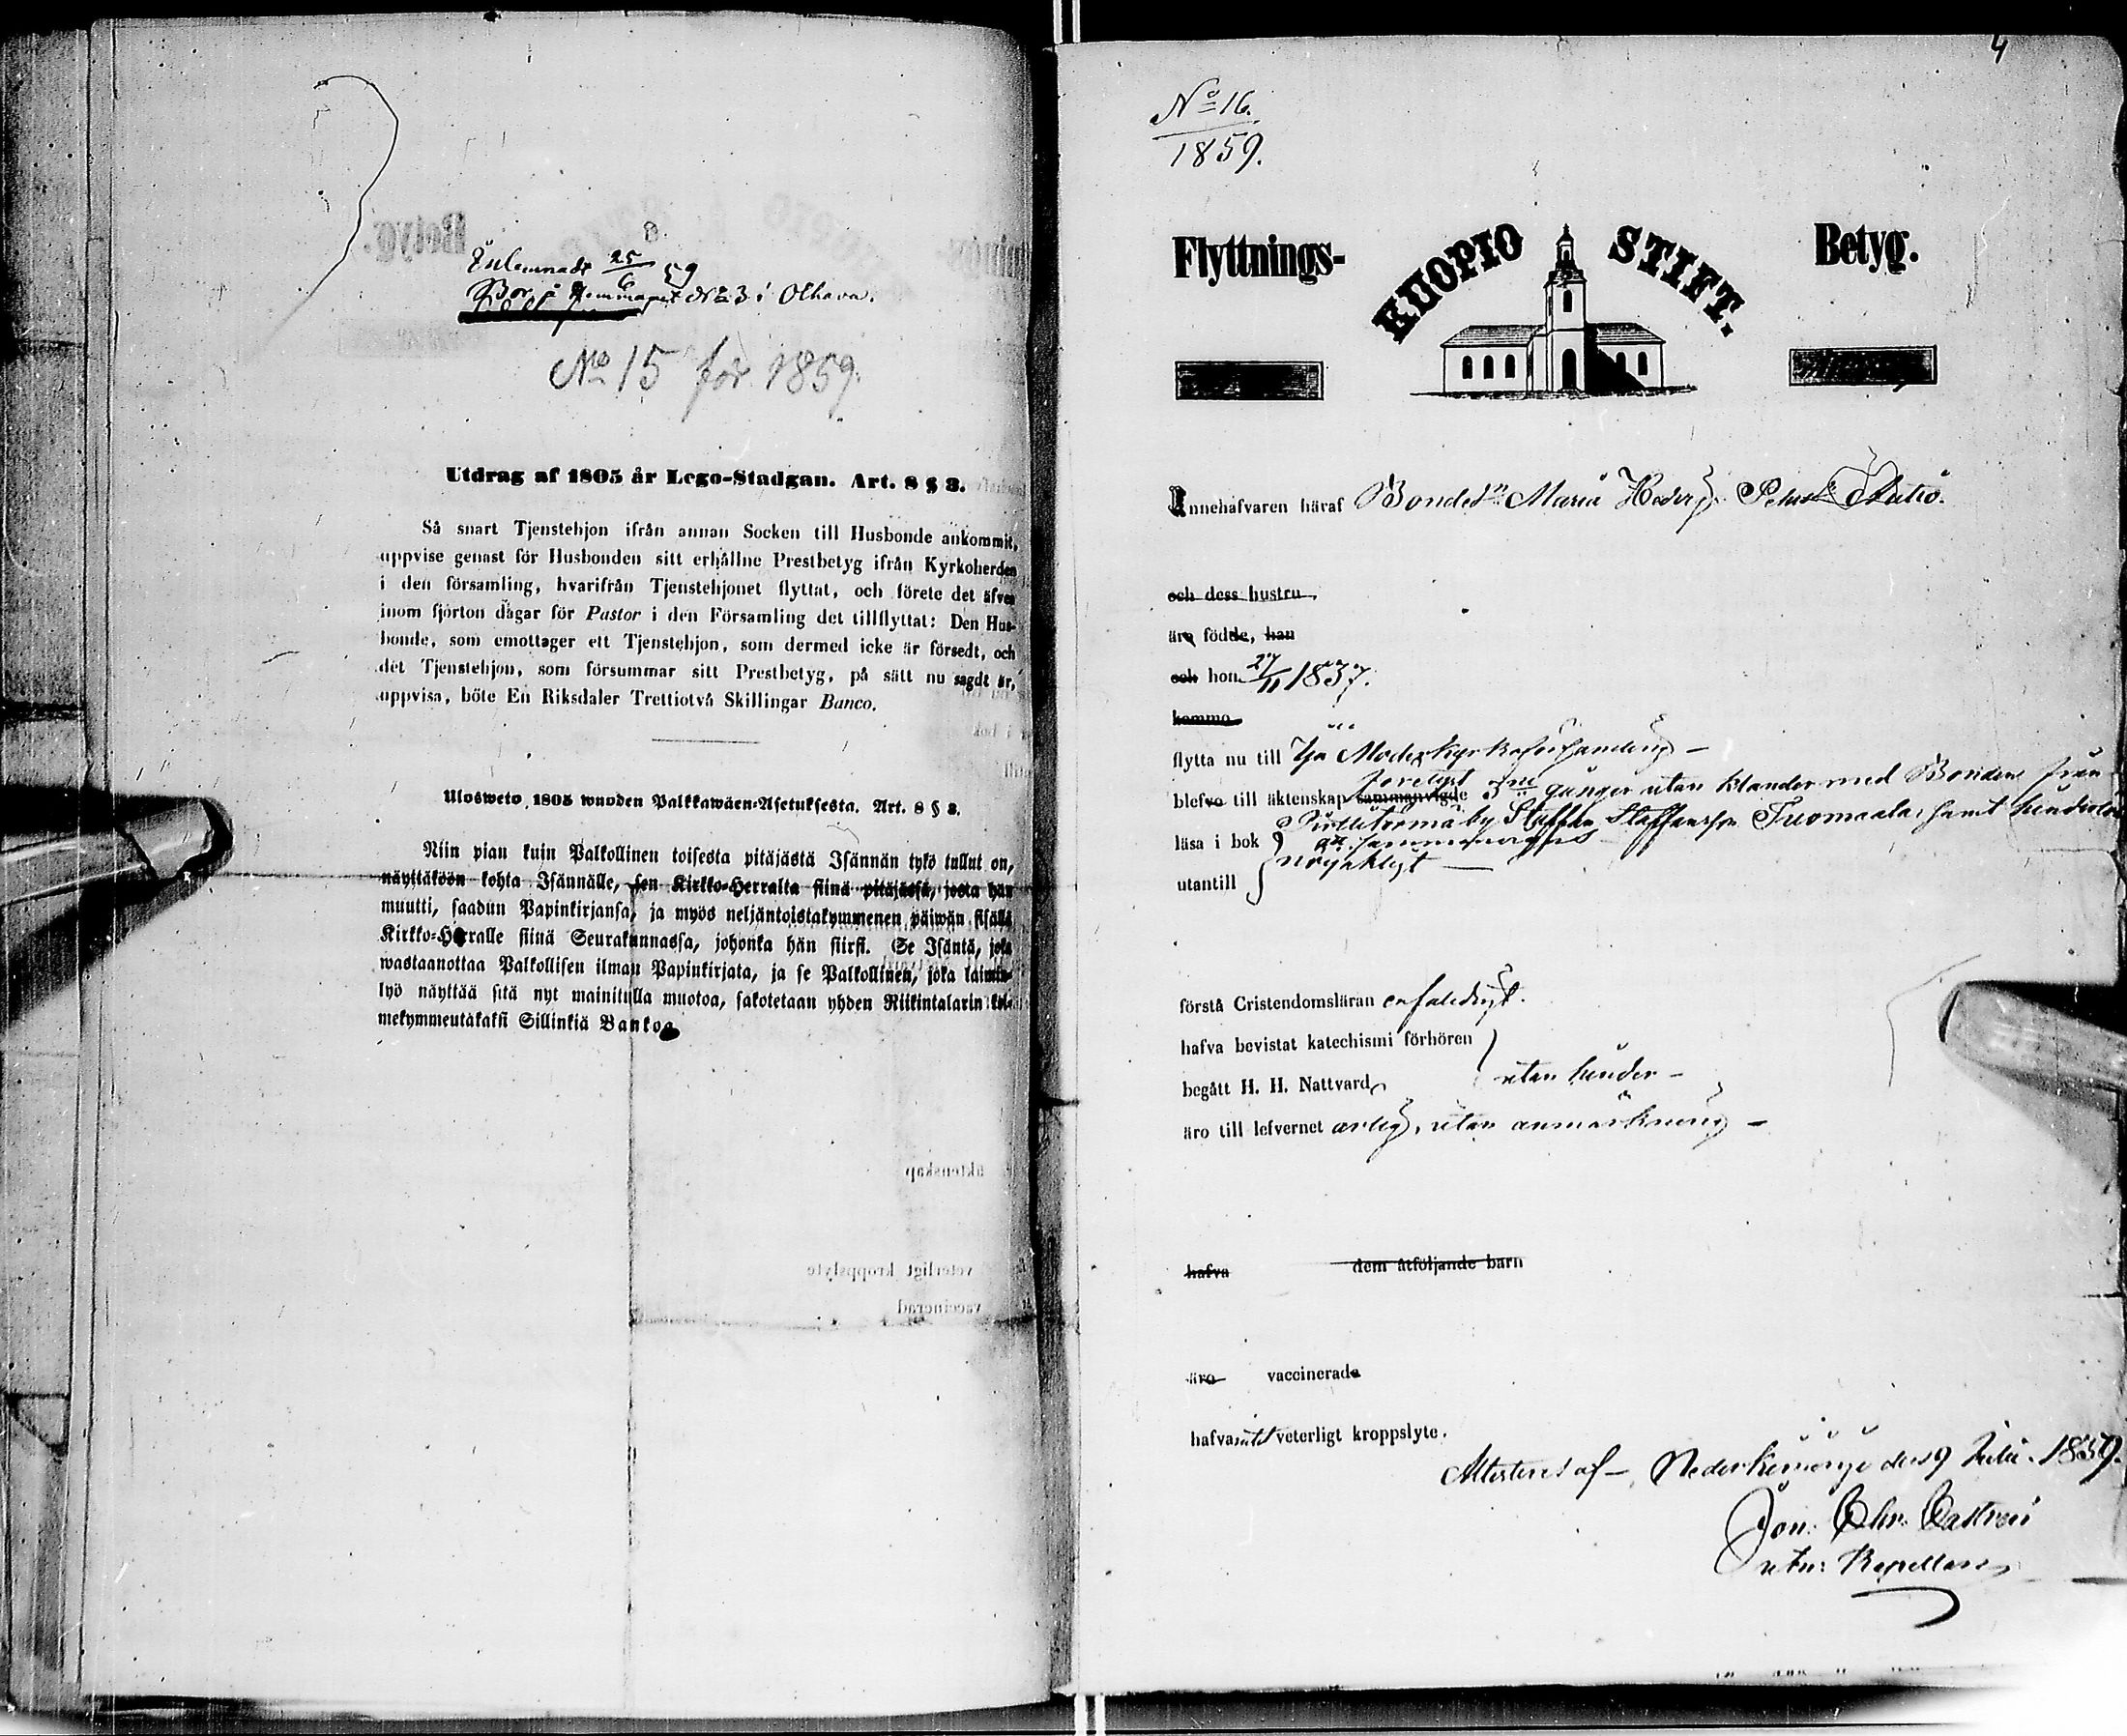 Inlemnadt 25/6 59
Bor på Hemmanet N:o 3 i Olhava.
No 15 för 1859.
Utdrag af 1805 år Lego-Stadgan. Art. 8 § 3.
Så snart Tjenstehjon ifrån annan Socken till Husbonde ankommit,
uppvise genast för Husbonden sitt erhållne Prestbetyg ifrån Kyrkoherden
i den församling, hvarifrån Tjenstehjonet flyttat, och förete det äfven
inom fjorton dagar för Pastor i den Församling det tillflyttat: Den Hus-
bonde, som emottager ett Tjenstehjon, som dermed icke är försedt, och
det Tjenstehjon, som försummar sitt Prestbetyg, på sätt nu sagdt är,
uppvisa, böte En Riksdaler Trettiotvå Skillingar Banco.
Ulosweto 1805 wuoden Palkkawäen-Asetuksesta. Art. 8 § 3.
Niin pian kuin Palkollinen toisesta pitäjästä Isännän tykö tullut on,
näyttäköön kohta Isännälle, sen Kirkko-Herralta siinä pitäjässä, josta hän
muutti, saadun Papinkirjansa, ja myös neljäntoistakymmenen päiwän sisällä
Kirkko-Herralle siinä Seurakunnassa, johonka hän siirsi. Se Isäntä, joka
wastaanottaa Palkollisen ilman Papinkirjata, ja se Palkollinen, joka laimin-
lyö näyttää sitä nyt mainitulla muotoa, sakotetaan yhden Riikintalarin kol-
mekymmentäkaksi Sillinkiä Bankoa
4
No 16.
1859.
Flyttnings- KUOPIO STIFT. Betyg.
Innehafvaren häraf Bonded:n Maria Hedvig Petersd:r
och dess hustru
äro födde, han
och hon 27/11 1837.
komma
flytta nu till Ijo Moderkyrkoförsamling -
blefvo till äktenskap sammanvigde förelyst 3ne gånger utan klander med Bonden från
by Staffan Staffansson Tuomaala, samt
läsa i bok
utantill nöjaktligt
förstå Cristendomsläran enfaldigt.
hafva bevistat katechismi förhören
begått H. H. Nattvard utan hinder -
äro till lefvernet ärlig, utan anmärkning -
hafva dem åtföljande barn
äro vaccinerade
hafva intet veterligt kroppslyte.
Attesteras af - Nederkiminge den 9 1859.
Jon: Chr. Castrén
Kapellan